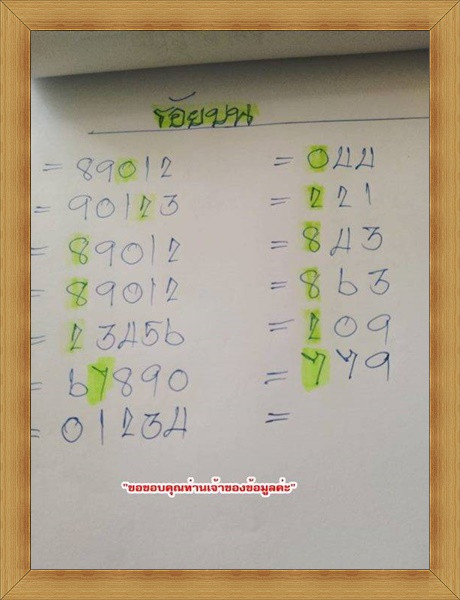 ร้อยบน
= 89012 = 044
= 90123 = 221
= 89012 = 843
= 89012 = 863
= 23456 = 209
= 67890 = 779
= 01234 =
"ขอขอบคุณท่านเจ้าของข้อมูลค่ะ"